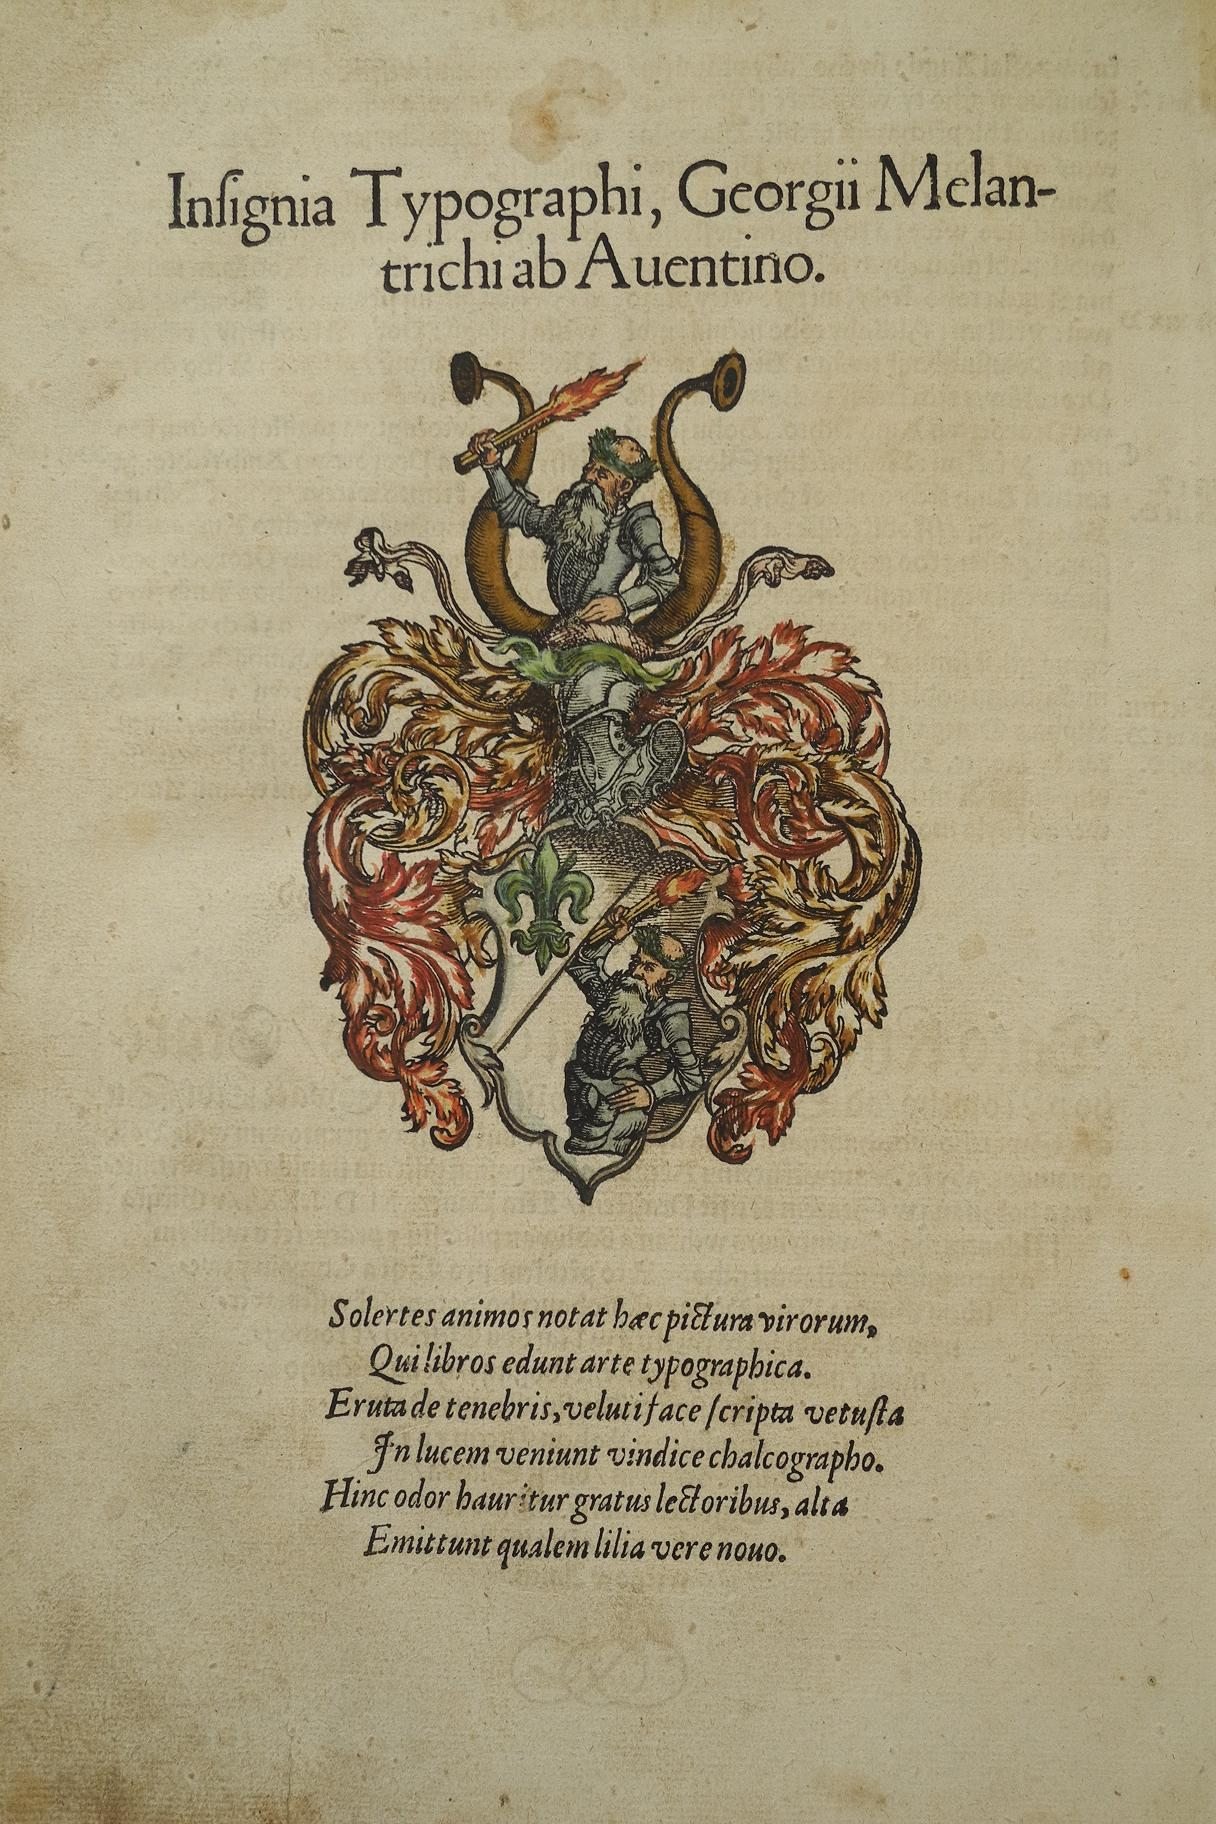 Inſignia Typographi, Georgii Melan-
trichi ab Auentino.
Solertes animos notat hæc pictura virorum,
Qui libros edunt arte typographica.
Eruta de tenebris, veluti face ſcripta vetuſta
In lucem veniunt vindice chalcographo.
Hinc odor hauritur gratus lectoribus, alta
Emittunt qualem lilia vere nouo.